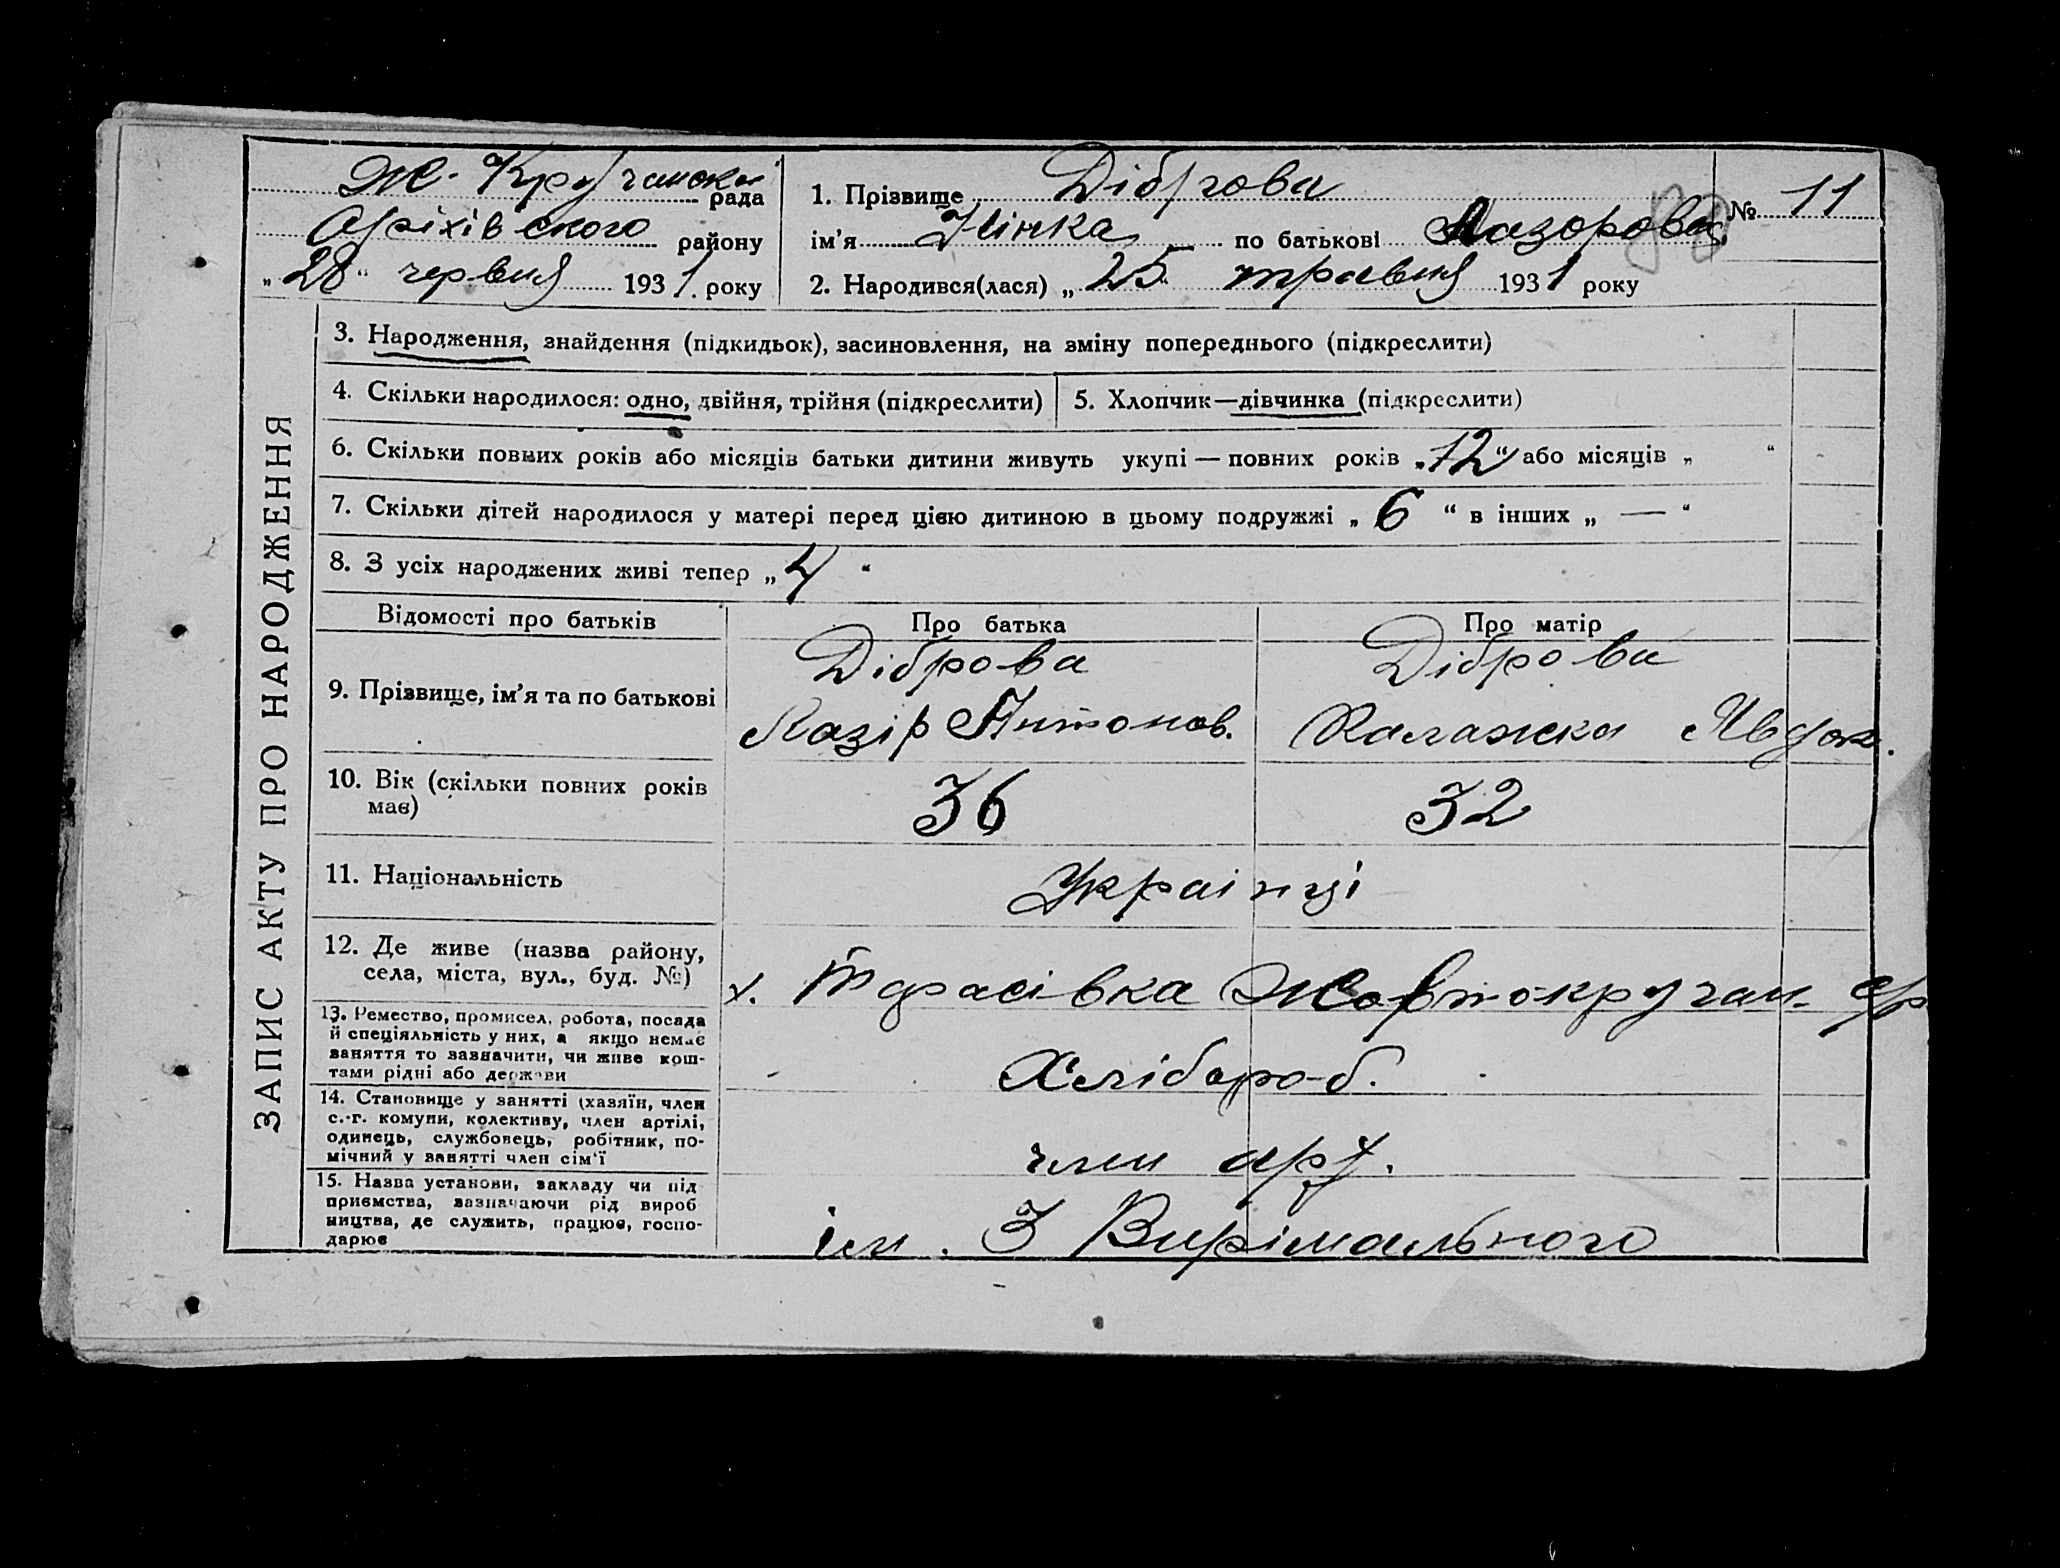 Ж. Кручанська рада
Оріхівського району
„28“ червня 1931 року
1. Прізвище Діброва
№ 11
ім’я Нінка по батькові Лазорова
2. Народився(лася) „25“ травня 1931 року
ЗАПИС АКТУ ПРО НАРОДЖЕННЯ
3. Народження, знайдення (підкидьок), засиновлення, на зміну попереднього (підкреслити)
4. Скільки народилося: одно, двійня, трійня (підкреслити)
5. Хлопчик—дівчинка (підкреслити)
6. Скільки повних років або місяців батьки дитини живуть укупі — повних років „12“ або місяців „ “
7. Скільки дітей народилося у матері перед цією дитиною в цьому подружжі „ 6 “ в інших „ — “
8. З усіх народжених живі тепер „ 4 “
Відомості про батьків
Про батька
Про матір
9. Прізвище, ім’я та по батькові
Діброва
Лазір Антонов.
Діброва
Явдок.
10. Вік (скільки повних років
має)
36
32
11. Національність
Українці
12. Де живе (назва району,
села, міста, вул., буд. №)
х. Тарасівка Жовтокручан. с/р
13. Ремество, промисел, робота, посада
й спеціяльність у них, а якщо немає
заняття то зазначити, чи живе кош-
тами рідні або держави
Хлібороб.
14. Становище у занятті (хазяїн, член
с.-г. комуни, колективу, член артілі,
одинець, службовець, робітник, по-
мічний у занятті член сім‘ї
член арт.
15. Назва установи, закладу чи під
приємства, зазначаючи рід вироб
ництва, де служить, працює, госпо-
дарює
ім. З Вирішального